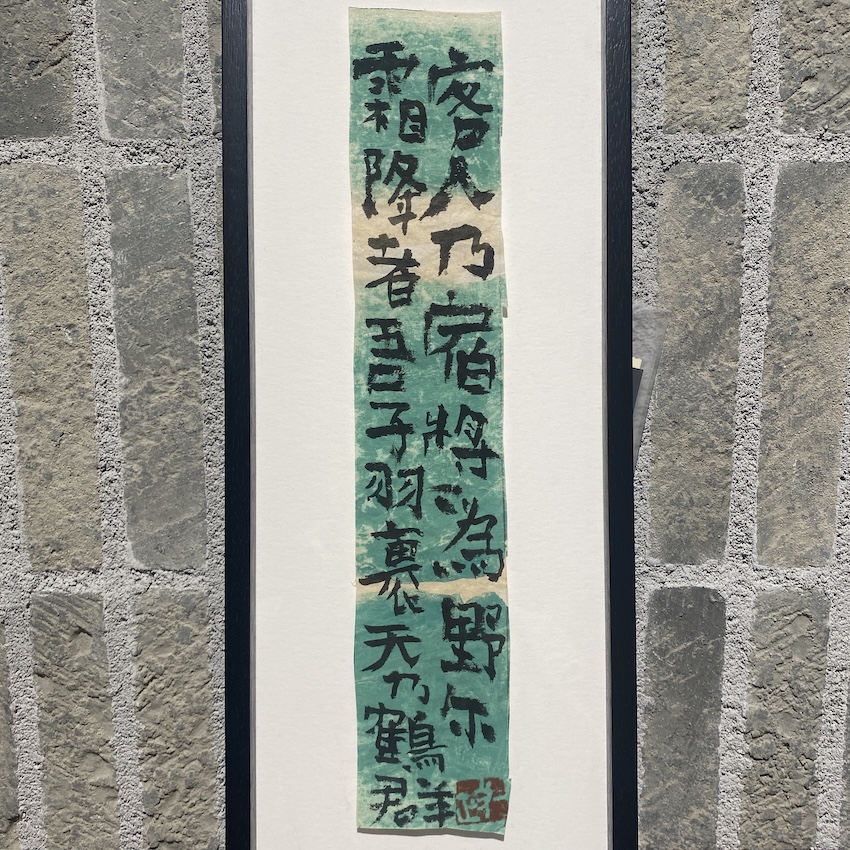 客人乃宿将為野尓
霜降者吾子羽裹天乃鶴群